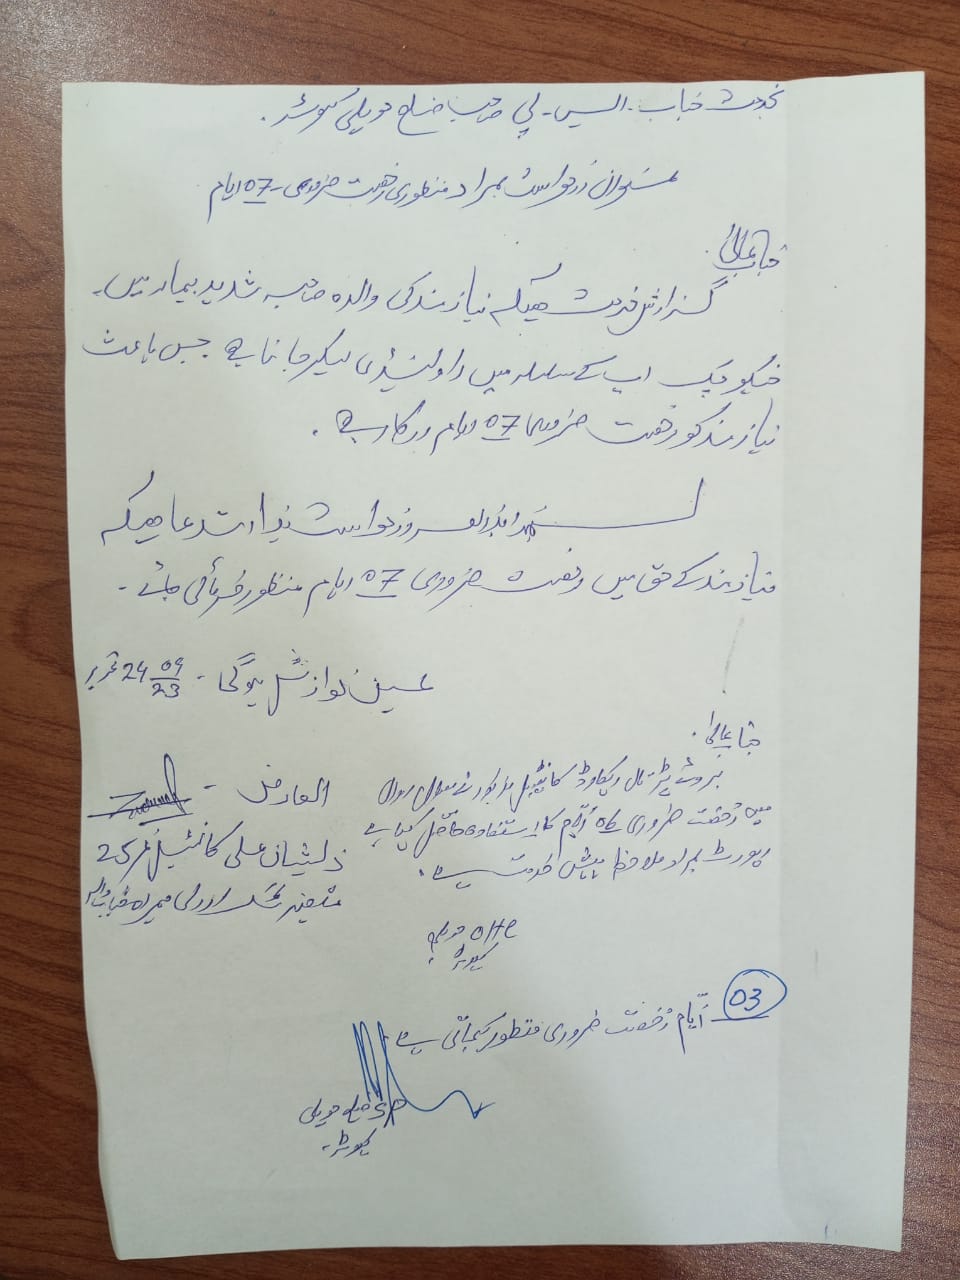 بخدمت جناب ایس۔ پی صاحب ضلع حویلی کہوٹہ۔
عنوان درخواست بمراد منظوری رخصت ضروری۔ 07 ایام
جناب عالیٰ!
گزارش خدمت ھیکہ نیازمند کی والدہ صاحبہ شدید بیمار ہیں۔
جنکو چیک اپ کے سلسلہ میں راولپنڈی لیکر جانا ہے جس باعث
نیازمند کو رخصت ضروری 07 ایام درکار ہے۔
لہذا بذریعہ درخواست استدعا ھیکہ
نیازمند کے حق میں رخصت ضروری 07 ایام منظور فرمائی جائے۔
عین نوازش ہوگی۔ تحریر 24 09/23
العارض۔
ذیشان علی کانسٹیبل نمبر 25
متعینہ اردلی ہمراہ جناب والا
جناب عالیٰ!
بروئے پڑتال ریکارڈ کانسٹیبل مذکور نے سال رواں
میں رخصت ضروری کے ایام کا استفادہ حاصل کیا ہے
رپورٹ بمراد ملاحظہ پیش خدمت ہے۔
OHC حویلی
کہوٹہ
03 ایام رخصت ضروری منظور کی جاتی ہے۔
SP ضلع حویلی
کہوٹہ۔